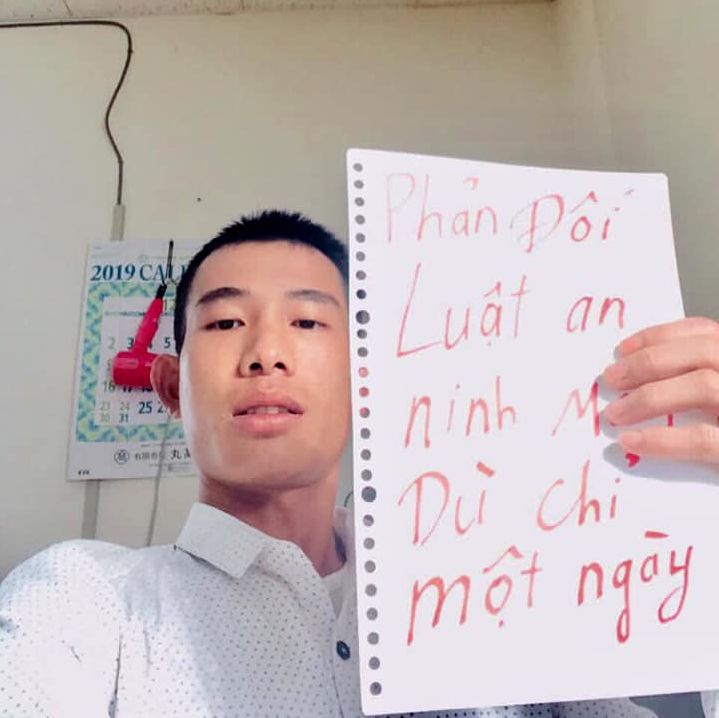 2019
2 3 4 5
9
16 17 18
23 24 25
30 31
有限会社 丸
Phản Đối
Luật an
ninh
Dù chỉ
một ngày